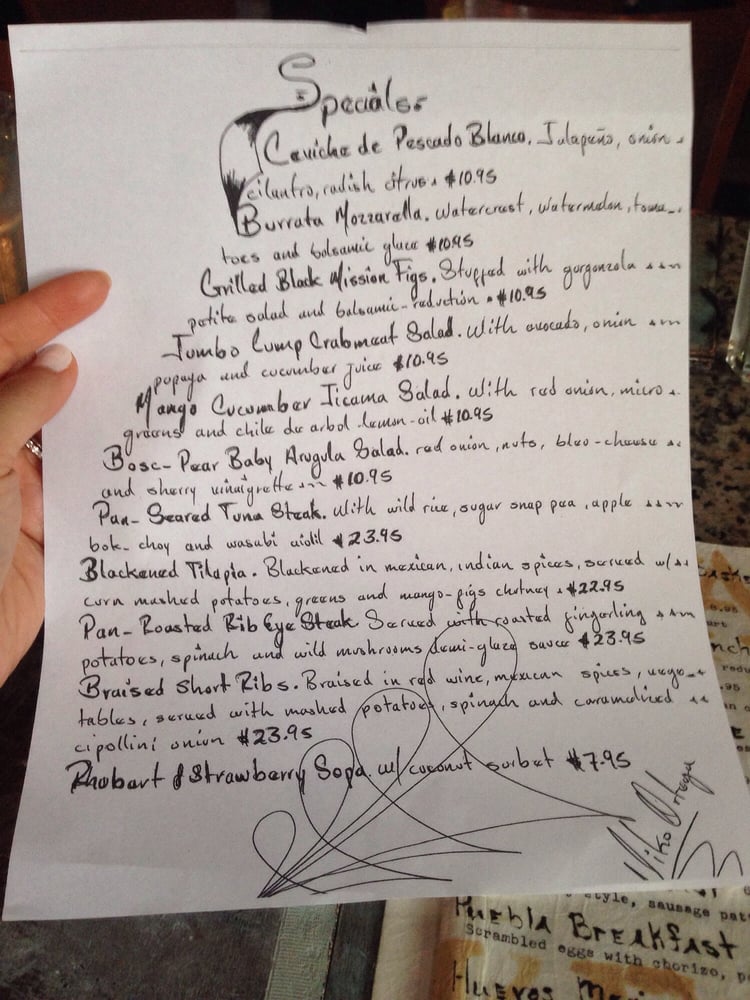 Specials:
Ceviche de Pescado Blanco. Jalapeño, onion
cilantro, radish citrus. $10.95
Burrata Mozzarella. Watercrest, watermelon, toma-
toes and balsamic glaze $10.95
Grilled Black Mission Figs. Stuffed with gorgonzola
petite salad and balsamic-reduction. $10.95
Jumbo Lump Crabmeat Salad. With avocado, onion
papaya and cucumber juice $10.95
Mango Cucumber Jicama Salad. With red onion, micro
greens and chile de arbol-lemon-oil $10.95
Bosc-Pear Baby Arugula Salad. red onion, nuts, bleo-cheese
and sherry vinaigrette $10.95
Pan-Seared Tuna Steak. With wild rice, sugar snap pea, apple
bok-choy and wasabi $23.95
Blackened Tilapia. Blackened in mexican, indian spices, served w/
corn mashed potatoes, greens and mango-figs chutney. $22.95
Pan-Roasted Rib Eye Steak Served with roasted fingerling
potatoes, spinach and wild mushrooms demi-glaze sauce $23.95
Braised Short Ribs. Braised in red wine, mexican spices, vege-
tables, served with mashed potatoes, spinach and caramelized
cipollini onion $23.95
Rhubart & Strawberry Sopa. w/ coconut sorbet $7.95
Niko Ortega
style, sausage
Puebla Breakfast
Scrambled eggs with chorizo,
Huevos